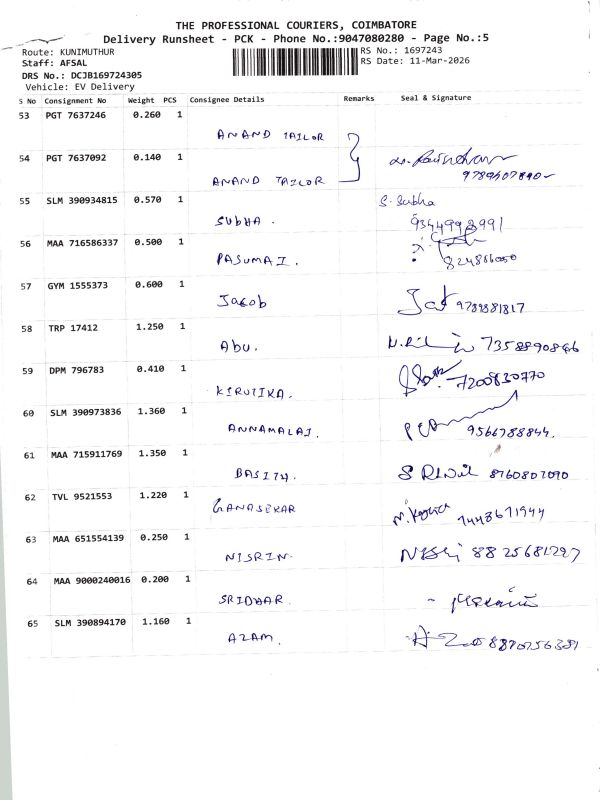 THE PROFESSIONAL COURIERS, COIMBATORE
Delivery Runsheet - PCK - Phone No.:9047080280 - Page No.:5
Route: KUNIMUTHUR
RS No.: 1697243
Staff: AFSAL
RS Date: 11-Mar-2026
DRS No.: DCJB169724305
Vehicle: EV Delivery
S No Consignment No Weight PCS Consignee Details Remarks Seal & Signature
53 PGT 7637246 0.260 1
ANAND TAILOR
54 PGT 7637092 0.140 1
ANAND TAILOR
55 SLM 390934815 0.570 1
S. Subha
SUBHA. 9344998991
56 MAA 716586337 0.500 1
PASUMAI.
57 GYM 1555373 0.600 1
Jacob 9789881817
58 TRP 17412 1.250 1
ABU. 7358890846
59 DPM 796783 0.410 1
KIRUTIKA. 7200830770
60 SLM 390973836 1.360 1
ANNAMALAI. 9566788844.
61 MAA 715911769 1.350 1
BASITH. 8760807090
62 TVL 9521553 1.220 1
GANASEKAR 7448671944
63 MAA 651554139 0.250 1
NISRIN. 8825681297
64 MAA 9000240016 0.200 1
SRIDHAR.
65 SLM 390894170 1.160 1
AZAM.